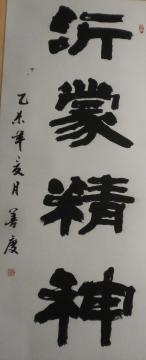 沂蒙精神
乙未年亥月善庆